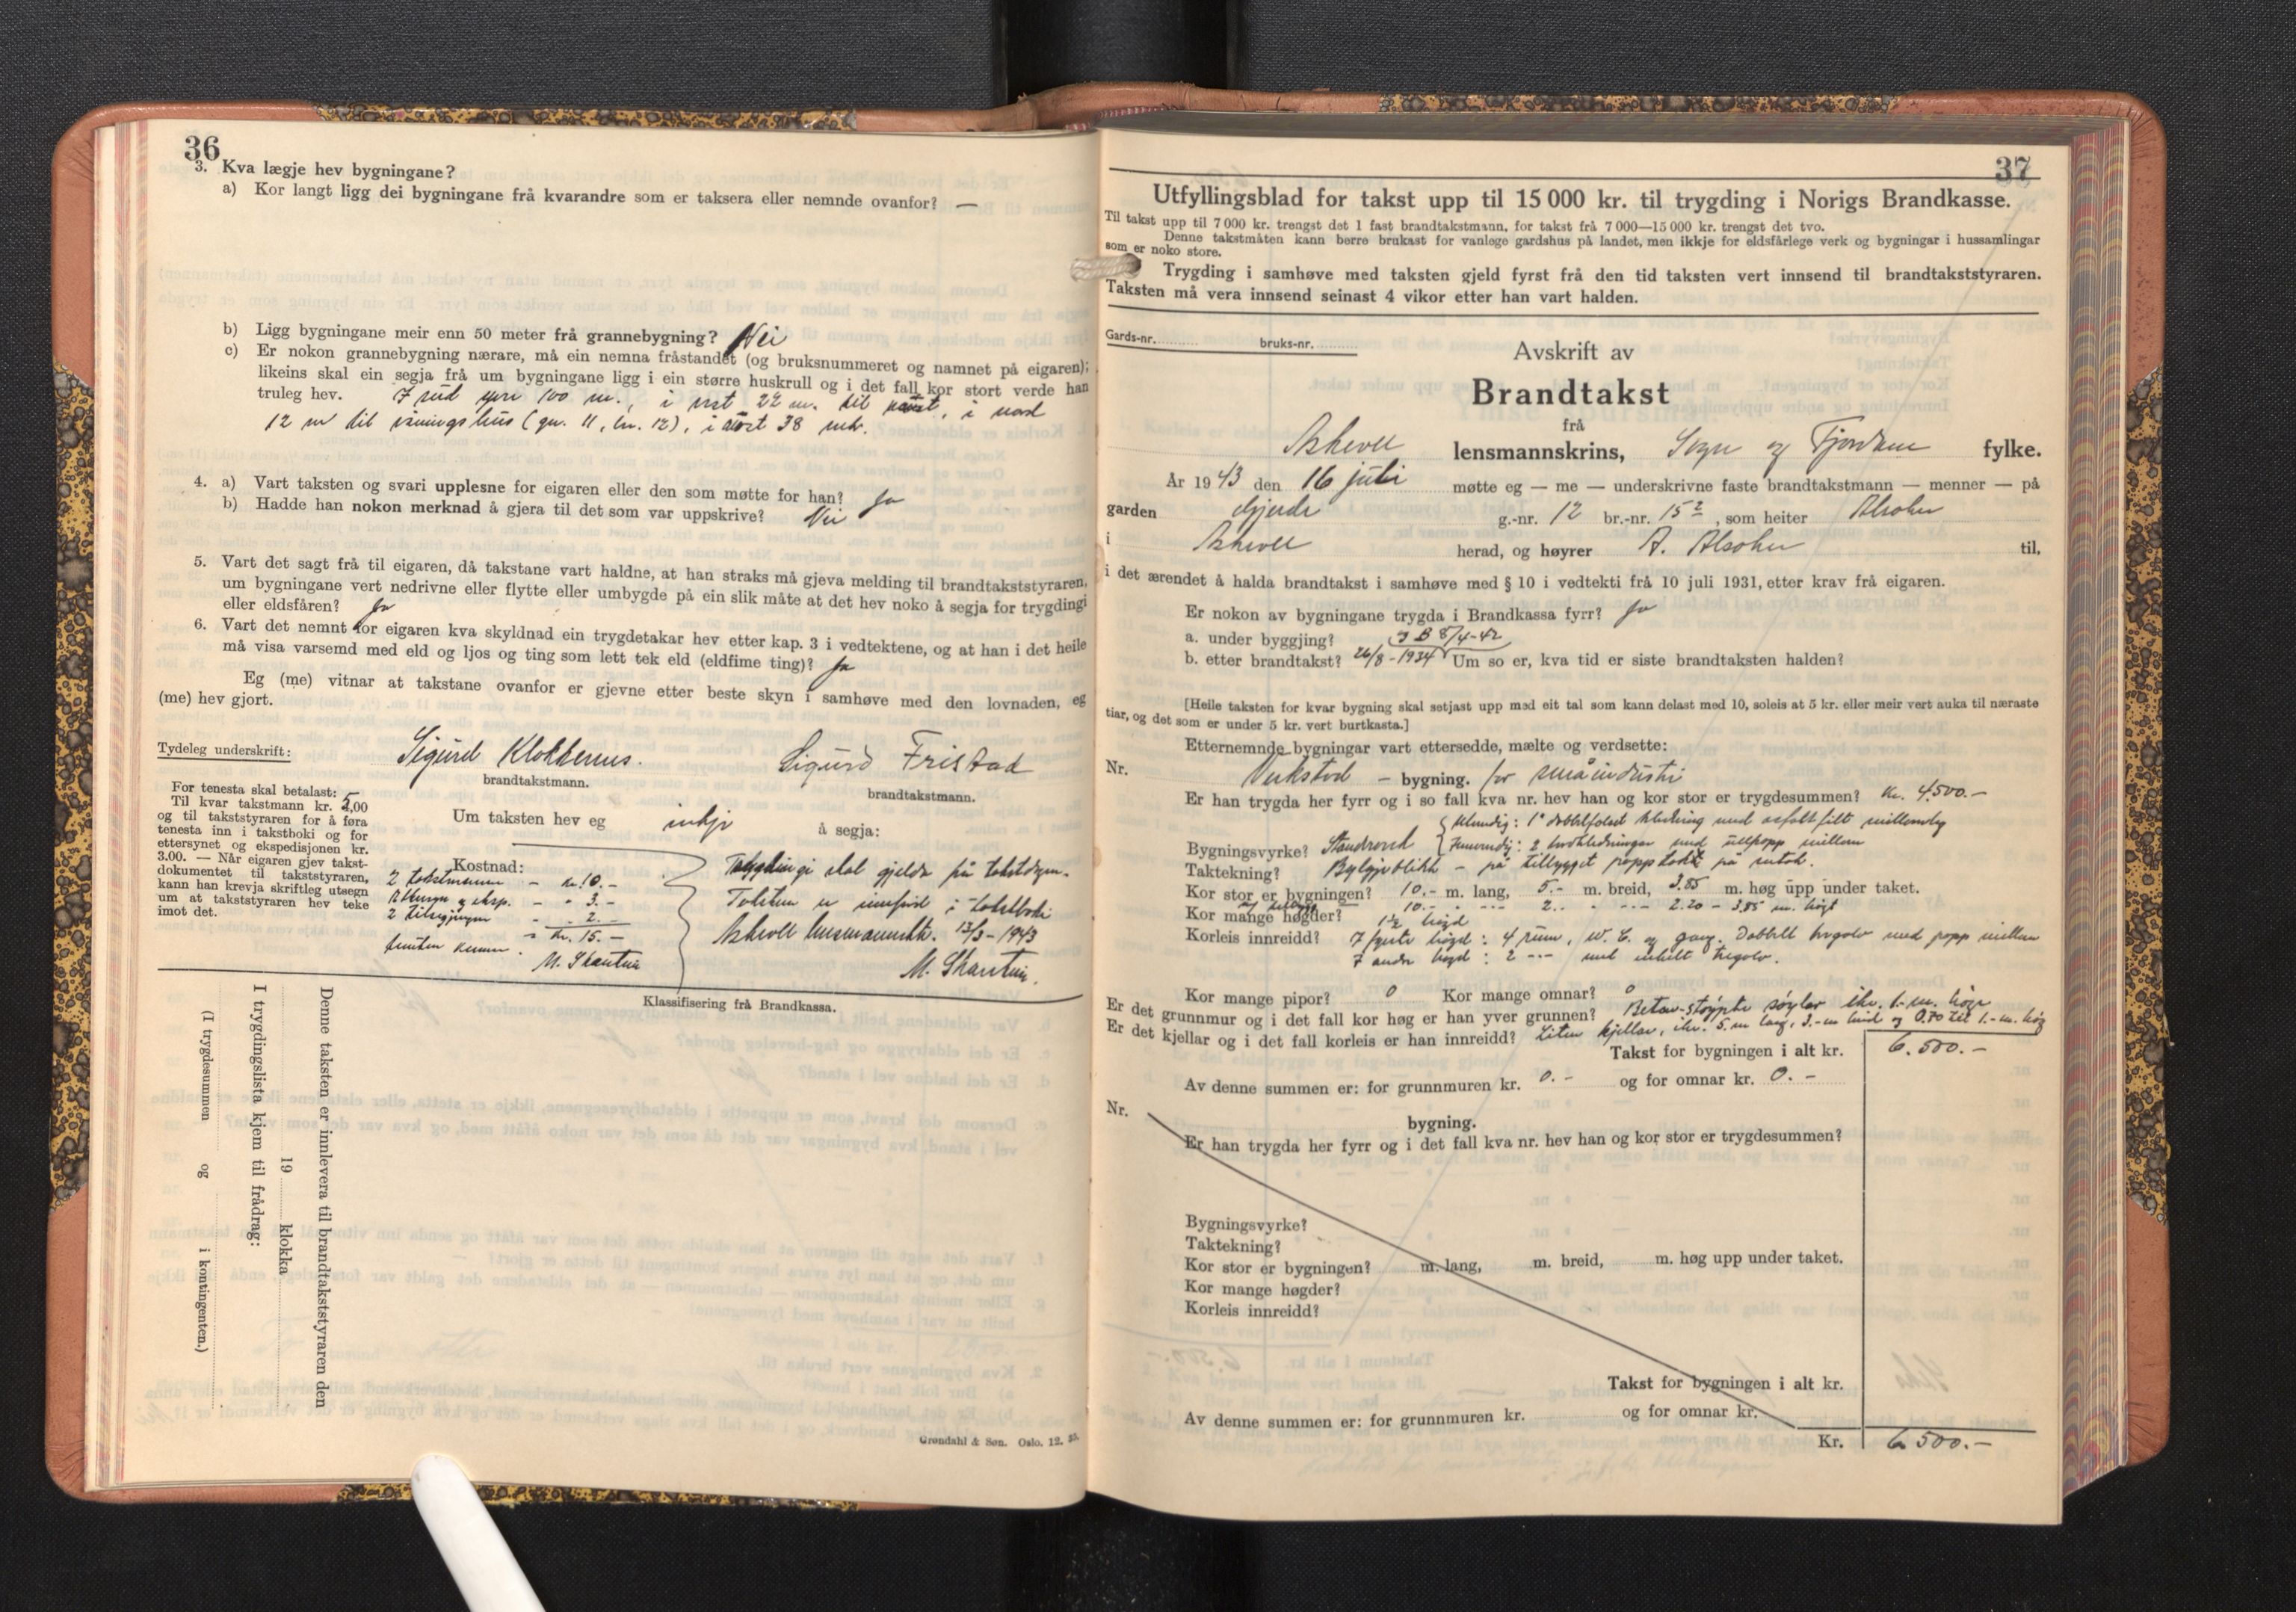 36
3. Kva lægje hev bygningane?
a) Kor langt ligg dei bygningane frå kvarandre som er taksera eller nemnde ovanfor? —
b) Ligg bygningane meir enn 50 meter frå grannebygning? Nei
c) Er nokon grannebygning nærare, må ein nemna fråstandet (og bruksnummeret og namnet på eigaren);
likeins skal ein segja frå um bygningane ligg i ein større huskrull og i det fall kor stort verde han
truleg hev. I sud yvi 100 m., i vest 22 m. til naust, i nord
12 m til våningshus (gn. 11, bn. 12), i aust 38 mtr.
4. a) Vart taksten og svari upplesne for eigaren eller den som møtte for han? Ja
b) Hadde han nokon merknad å gjera til det som var uppskrive? Nei
5. Vart det sagt frå til eigaren, då takstane vart haldne, at han straks må gjeva melding til brandtakststyraren,
um bygningane vert nedrivne eller flytte eller umbygde på ein slik måte at det hev noko å segja for trygdingi
eller eldsfåren? Ja
6. Vart det nemnt for eigaren kva skyldnad ein trygdetakar hev etter kap. 3 i vedtektene, og at han i det heile
må visa varsemd med eld og ljos og ting som lett tek eld (eldfime ting)? Ja
Eg (me) vitnar at takstane ovanfor er gjevne etter beste skyn i samhøve med den lovnaden, eg
(me) hev gjort.
Tydeleg underskrift: Sigurd Klokkernes. Sigurd Fristad
brandtakstmann. brandtakstmann.
For tenesta skal betalast:
Til kvar takstmann kr. 5,00
og til takststyraren for å føra
tenesta inn i takstboki og for
ettersynet og ekspedisjonen kr.
3.00. — Når eigaren gjev takst-
dokumentet til takststyraren,
kann han krevja skriftleg utsegn
um at takststyraren hev teke
imot det.
Um taksten hev eg inkje å segja:
Kostnad:
2 takstmenn - kr. 10.-
Ettersyn og eksp. - " 3.-
2 - " 2.-
= Kr. 15.-
femten kroner.
M. Skautun
Trygdingi skal gjelda frå takstdagen.
Taksten er innførd i takstboki
Askvoll lensmannsktr. 12/8-1943
M. Skautun.
Klassifisering frå Brandkassa.
Denne taksten er innlevera til brandtakststyraren den
19 klokka
I trygdingslista kjem til frådrag:
(I trygdesummen og i kontingenten.)
Grøndahl & Søn. Oslo. 12. 35.
37
Utfyllingsblad for takst upp til 15 000 kr. til trygding i Norigs Brandkasse.
Til takst upp til 7 000 kr. trengst det 1 fast brandtakstmann, for takst frå 7 000—15 000 kr. trengst det tvo.
Denne takstmåten kann berre brukast for vanlege gardshus på landet, men ikkje for eldsfårlege verk og bygningar i hussamlingar
som er noko store.
Trygding i samhøve med taksten gjeld fyrst frå den tid taksten vert innsend til brandtakststyraren.
Taksten må vera innsend seinast 4 vikor etter han vart halden.
Gards-nr. bruks-nr.
Avskrift av
Brandtakst
frå
Askvoll lensmannskrins, Sogn og Fjordane fylke.
År 1943 den 16 juli møtte eg — me — underskrivne faste brandtakstmann — menner — på
garden Gjerde g.-nr. 12 br.-nr. 15², som heiter Alsaker
i Askvoll herad, og høyrer A. Alsaker til,
i det ærendet å halda brandtakst i samhøve med § 10 i vedtekti frå 10 juli 1931, etter krav frå eigaren.
Er nokon av bygningane trygda i Brandkassa fyrr? Ja
a. under byggjing? I B 8/4-42
b. etter brandtakst? 26/8-1934 Um so er, kva tid er siste brandtaksten halden?
[Heile taksten for kvar bygning skal setjast upp med eit tal som kann delast med 10, soleis at 5 kr. eller meir vert auka til næraste
tiar, og det som er under 5 kr. vert burtkasta.]
Etternemnde bygningar vart ettersedde, mælte og verdsette:
Nr. Verkstad - bygning. for småindustri
Er han trygda her fyrr og i so fall kva nr. hev han og kor stor er trygdesummen? Kr. 4.500.-
Utvendig: 1" dobbeltfalset kledning med asfaltfilt millomlag
Bygningsvyrke? Standverk Innvendig: 2 bordkledningar med ullpapp millom
Taktekning? Bylgjeblikk - på tilbygget pappstokt på sutak.
Kor stor er bygningen? 10.- m. lang, 5.- m. breid, 3.85 m. høg upp under taket.
10.- - --- 2.. - --- 2.20 - 3,85 m. høgt
Kor mange høgder? 1½ høgd
Korleis innreidd? I fyrste høgd: 4 rum, W. C. og gang. Dobbelt tregolv med papp millom
I andre høgd: 2 --- med enkelt tregolv.
Kor mange pipor? 0 Kor mange omnar? 0
Er det grunnmur og i det fall kor høg er han yver grunnen? Betong-støypte søyler ikr. 1.-m. høge
Er det kjellar og i det fall korleis er han innreidd? Liten kjellar, ikr. 5 m lang, 3.-m breid og 0.70 til 1.-m. høg
Takst for bygningen i alt kr. 6.500.-
Av denne summen er: for grunnmuren kr. 0.- og for omnar kr. 0.-
Nr. bygning.
Er han trygda her fyrr og i det fall kva nr. hev han og kor stor er trygdesummen?
Bygningsvyrke?
Taktekning?
Kor stor er bygningen? m. lang, m. breid, m. høg upp under taket.
Kor mange høgder?
Korleis innreidd?
Takst for bygningen i alt kr.
Av denne summen er: for grunnmuren kr. og for omnar kr.
Kr. 6.500.-